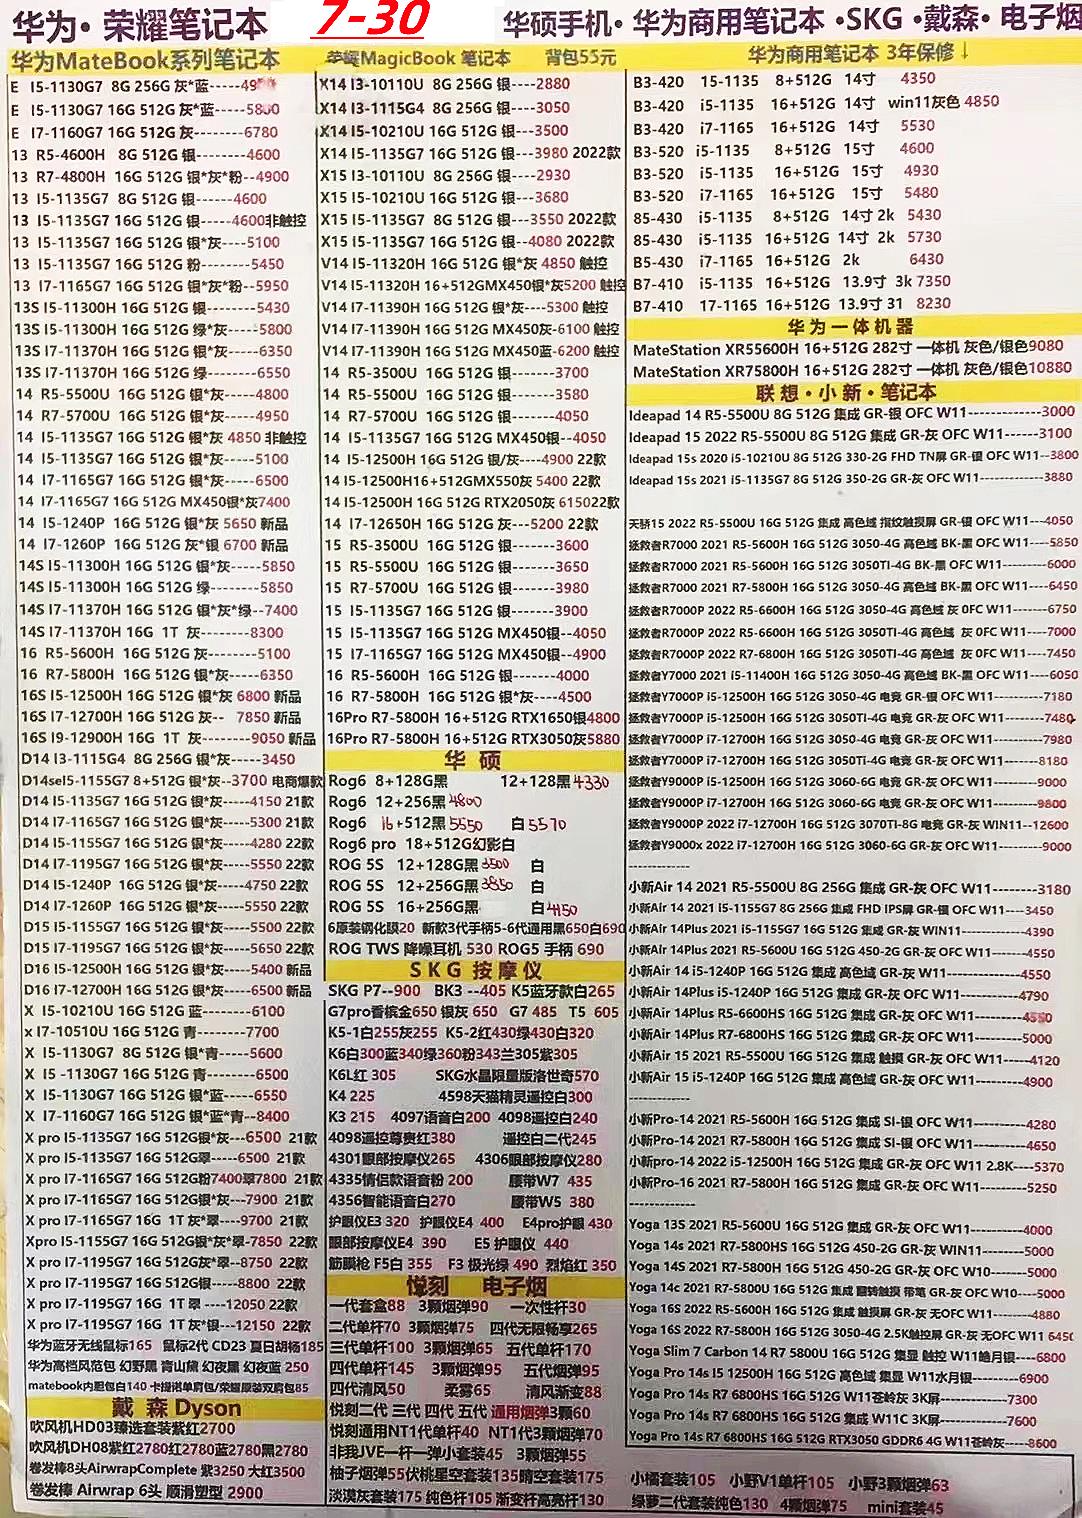 华为·荣耀笔记本
7-30
华硕手机·华为商用笔记本·SKG·戴森·电子烟
华为MateBook系列笔记本
E I5-1130G7 8G 256G 灰*蓝-----
E I5-1130G7 16G 512G 灰*蓝-----5800
E I7-1160G7 16G 512G 灰--------6780
13 R5-4600H 8G 512G 银--------4600
13 R7-4800H 16G 512G 银*灰*粉--4900
13 I5-1135G7 8G 512G 银-------4600
13 I5-1135G7 16G 512G 银-----4600非触控
13 I5-1135G7 16G 512G 银*灰----5100
13 I5-1135G7 16G 512G 粉-------5450
13 I7-1165G7 16G 512G 银*灰*粉--5950
13S I5-11300H 16G 512G 银------5430
13S I5-11300H 16G 512G 绿*灰---5800
13S I7-11370H 16G 512G 银*灰---6350
13S I7-11370H 16G 512G 绿------6550
14 R5-5500U 16G 512G 银*灰----4800
14 R7-5700U 16G 512G 银*灰----4950
14 I5-1135G7 16G 512G 银*灰 4850 非触控
14 I5-1135G7 16G 512G 银*灰----5100
14 I7-1165G7 16G 512G 银*灰----6500
14 I7-1165G7 16G 512G MX450银*灰7400
14 I5-1240P 16G 512G 银*灰 5650 新品
14 I7-1260P 16G 512G 灰*银 6700 新品
14S I5-11300H 16G 512G 银*灰----5850
14S I5-11300H 16G 512G 绿------5850
14S I7-11370H 16G 512G 银*灰*绿--7400
14S I7-11370H 16G 1T 灰--------8300
16 R5-5600H 16G 512G 灰--------5100
16 R7-5800H 16G 512G 银*灰-----6350
16S I5-12500H 16G 512G 银*灰 6800 新品
16S I7-12700H 16G 512G 灰-- 7850 新品
16S I9-12900H 16G 1T 灰-------9050 新品
D14 I3-1115G4 8G 256G 银*灰---3450
D14seI5-1155G7 8+512G 银*灰--3700 电商爆款
D14 I5-1135G7 16G 512G 银*灰----4150 21款
D14 I7-1165G7 16G 512G 银*灰----5300 21款
D14 I5-1155G7 16G 512G 银*灰----4280 22款
D14 I7-1195G7 16G 512G 银*灰---5550 22款
D14 I5-1240P 16G 512G 银*灰----4750 22款
D14 I7-1260P 16G 512G 银*灰----5550 22款
D15 I5-1155G7 16G 512G 银*灰---4500 22款
D15 I7-1195G7 16G 512G 银*灰---5650 22款
D16 I5-12500H 16G 512G 银*灰---5400 新品
D16 I7-12700H 16G 512G 银*灰---6500 新品
X I5-10210U 16G 512G 蓝--------6100
x I7-10510U 16G 512G 青-------7700
X I5-1130G7 8G 512G 银*青-----5600
X I5 -1130G7 16G 512G 青-------6500
X I5-1130G7 16G 512G 银*蓝-----6550
X I7-1160G7 16G 512G 银*蓝*青--8400
X pro I5-1135G7 16G 512G银*灰---6500 21款
X pro I5-1135G7 16G 512G翠-----6500 21款
X pro I7-1165G7 16G 512G粉7400翠7800 21款
X pro I7-1165G7 16G 512G银*灰---7900 21款
X pro I7-1165G7 16G 1T 灰*翠----9700 21款
Xpro I5-1155G7 16G 512G银*灰*翠-7850 22款
X pro I7-1195G7 16G 512G灰*翠--8750 22款
X pro I7-1195G7 16G 512G银-----8800 22款
X pro I7-1195G7 16G 1T 翠 ----12050 22款
X pro I7-1195G7 16G 1T 灰*银---12150 22款
华为蓝牙无线鼠标165 鼠标2代 CD23 夏日胡杨185
华为高档风范包 幻野黑 青山黛 幻夜黑 幻夜蓝 250
matebook内胆包白140 卡提诺单肩包/荣耀原装双肩包85
戴 森 Dyson
吹风机HD03臻选套装紫红2700
吹风机DH08紫红2780红2780蓝2780黑2780
卷发棒8头AirwrapComplete 紫3250 大红3500
卷发棒 Airwrap 6头 顺滑塑型 2900
荣耀MagicBook 笔记本 背包55元
X14 I3-10110U 8G 256G 银----2880
X14 I3-1115G4 8G 256G 银----3050
X14 I5-10210U 16G 512G 银---3500
X14 I5-1135G7 16G 512G 银---3980 2022款
X15 I3-10110U 8G 256G 银----2930
X15 I5-10210U 16G 512G 银---3680
X15 I5-1135G7 8G 512G 银---3550 2022款
X15 I5-1135G7 16G 512G 银--4080 2022款
V14 I5-11320H 16G 512G 银*灰 4850 触控
V14 I5-11320H 16+512GMX450银*灰5200 触控
V14 I7-11390H 16G 512G 银*灰----5300 触控
V14 I7-11390H 16G 512G MX450灰-6100 触控
V14 I7-11390H 16G 512G MX450蓝-6200 触控
14 R5-3500U 16G 512G 银-------3700
14 R5-5500U 16G 512G 银-------3580
14 R7-5700U 16G 512G 银-------4050
14 I5-1135G7 16G 512G MX450银--4050
14 I5-12500H 16G 512G 银/灰----4900 22款
14 I5-12500H16+512GMX550灰 5400 22款
14 I5-12500H 16G 512G RTX2050灰 615022款
14 I7-12650H 16G 512G 灰---5200 22款
15 R5-3500U 16G 512G 银-------3600
15 R5-5500U 16G 512G 银-------3650
15 R7-5700U 16G 512G 银-------3980
15 I5-1135G7 16G 512G 银------3900
15 I5-1135G7 16G 512G MX450银--4050
15 I7-1165G7 16G 512G MX450银--4900
16 R5-5600H 16G 512G 银-------4000
16 R7-5800H 16G 512G 银*灰----4500
16Pro R7-5800H 16+512G RTX1650银4800
16Pro R7-5800H 16+512G RTX3050灰5880
华 硕
Rog6 8+128G黑 12+128黑 4330
Rog6 12+256黑 4800
Rog6 16+512黑 5550 白 5570
Rog6 pro 18+512G幻影白
ROG 5S 12+128G黑 3500 白
ROG 5S 12+256G黑 3850 白
ROG 5S 16+256G黑 白 4150
6原装钢化膜20 新款3代手柄5-6代通用黑650白690
ROG TWS 降噪耳机 530 ROG5 手柄 690
SKG 按摩仪
SKG P7--900 BK3 --405 K5蓝牙款白265
G7pro香槟金650 银灰 650 G7 485 T5 605
K5-1白255灰255 K5-2红430绿430白320
K6白300蓝340绿360粉343兰305紫305
K6L红 305 SKG水晶限量版洛世奇570
K4 225 4598天猫精灵遥控白300
K3 215 4097语音白200 4098遥控白240
4098遥控尊贵红380 遥控白二代245
4301眼部按摩仪265 4306眼部按摩仪280
4335情侣款语音粉 200 腰带W7 435
4356智能语音白270 腰带W5 380
护眼仪E3 320 护眼仪E4 400 E4pro护眼 430
眼部按摩仪E4 390 E5 护眼仪 440
筋膜枪 F5白 355 F3 极光绿 490 烈焰红 350
悦刻 电子烟
一代套盒88 3颗烟弹90 一次性杆30
二代单杆70 3颗烟弹75 四代无限畅享265
三代单杆100 3颗烟弹65 五代单杆170
四代单杆145 3颗烟弹95 五代烟弹95
四代清风50 柔雾65 清风渐变88
悦刻二代 三代 四代 五代 通用烟弹3颗60
悦刻通用NT1代单杆40 NT1代3颗烟弹70
非我JVE一杆一弹小套装45 3颗烟弹55
柚子烟弹55伏桃星空套装135晴空套装175
淡漠灰套装175 纯色杆105 渐变杆高亮杆130
华为商用笔记本 3年保修↓
B3-420 15-1135 8+512G 14寸 4350
B3-420 i5-1135 16+512G 14寸 win11灰色 4850
B3-420 i7-1165 16+512G 14寸 5530
B3-520 i5-1135 8+512G 15寸 4600
B3-520 i5-1135 16+512G 15寸 4930
B3-520 i7-1165 16+512G 15寸 5480
85-430 i5-1135 8+512G 14寸 2k 5430
85-430 i5-1135 16+512G 14寸 2k 5730
B5-430 i7-1165 16+512G 2k 6430
B7-410 i5-1135 16+512G 13.9寸 3k 7350
B7-410 17-1165 16+512G 13.9寸 31 8230
华 为 一 体 机 器
MateStation XR55600H 16+512G 282寸 一体机 灰色/银色9080
MateStation XR75800H 16+512G 282寸 一体机 灰色/银色10880
联 想 · 小 新 · 笔 记 本
Ideapad 14 R5-5500U 8G 512G 集成 GR-银 OFC W11------------3000
Ideapad 15 2022 R5-5500U 8G 512G 集成 GR-灰 OFC W11------3100
Ideapad 15s 2020 i5-10210U 8G 512G 330-2G FHD TN屏 GR-银 OFC W11--3800
Ideapad 15s 2021 i5-1135G7 8G 512G 350-2G GR-灰 OFC W11------------3880
天骄15 2022 R5-5500U 16G 512G 集成 高色域 指纹触摸屏 GR-银 OFC W11---4050
拯救者R7000 2021 R5-5600H 16G 512G 3050-4G 高色域 BK-黑 OFC W11-----5850
拯救者R7000 2021 R5-5600H 16G 512G 3050TI-4G BK-黑 OFC W11---------6000
拯救者R7000 2021 R7-5800H 16G 512G 3050-4G 高色域 BK-黑 OFC W11-----6450
拯救者R7000P 2022 R5-6600H 16G 512G 3050-4G 高色域 灰 0FC W11------6750
拯救者R7000P 2022 R5-6600H 16G 512G 3050TI-4G 高色域 灰 0FC W11----7000
拯救者R7000P 2022 R7-6800H 16G 512G 3050TI-4G 高色域 灰 0FC W11----7450
拯救者Y7000 2021 i5-11400H 16G 512G 3050-4G 高色域 BK-黑 OFC W11----6050
拯救者Y7000P i5-12500H 16G 512G 3050-4G 电竞 GR-银 OFC W11---------7180
拯救者Y7000P i5-12500H 16G 512G 3050TI-4G 电竞 GR-灰 OFC W11-------7480
拯救者Y7000P i7-12700H 16G 512G 3050-4G 电竞 GR-灰 OFC W11---------7980
拯救者Y7000P i7-12700H 16G 512G 3050Ti-4G 电竞 GR-灰 OFC W11-------8180
拯救者Y9000P i5-12500H 16G 512G 3060-6G 电竞 GR-灰 OFC W11--------9000
拯救者Y9000P i7-12700H 16G 512G 3060-6G 电竞 GR-灰 OFC W11--------9800
拯救者Y9000P 2022 i7-12700H 16G 512G 3070TI-8G 电竞 GR-灰 WIN11--12600
拯救者Y9000x 2022 i7-12700H 16G 512G 3060-6G GR-灰 OFC W11--------9000
------------
小新Air 14 2021 R5-5500U 8G 256G 集成 GR-灰 OFC W11---------3180
小新Air 14 2021 I5-1155G7 8G 256G 集成 FHD IPS屏 GR-银 OFC W11----3450
小新Air 14Plus 2021 i5-1155G7 16G 512G 集成 GR-灰 WIN11---------4390
小新Air 14Plus 2021 R5-5600U 16G 512G 450-2G GR-灰 OFC W11------4550
小新Air 14 i5-1240P 16G 512G 集成 高色域 GR-灰 W11-----------4550
小新Air 14Plus i5-1240P 16G 512G 集成 GR-灰 OFC W11----------4790
小新Air 14Plus R5-6600HS 16G 512G 集成 GR-灰 OFC W11---------
小新Air 14Plus R7-6800HS 16G 512G 集成 GR-灰 OFC W11---------5000
小新Air 15 2021 R5-5500U 16G 512G 集成 触摸 GR-灰 OFC W11----4120
小新Air 15 i5-1240P 16G 512G 集成 高色域 GR-灰 OFC W11-------4900
------------
小新Pro-14 2021 R5-5600H 16G 512G 集成 SI-银 OFC W11--------4280
小新Pro-14 2021 R7-5800H 16G 512G 集成 SI-银 OFC W11--------4650
小新pro-14 2022 i5-12500H 16G 512G 集成 GR-灰 OFC W11 2.8K----5370
小新Pro-16 2021 R7-5800H 16G 512G 集成 GR-灰 OFC W11-------5250
------------
Yoga 13S 2021 R5-5600U 16G 512G 集成 GR-灰 OFC W11---------4000
Yoga 14s 2021 R7-5800HS 16G 512G 450-2G GR-灰 WIN11--------5000
Yoga 14S 2021 R7-5800HS 16G 512G 450-2G GR-灰 OFC W10------5000
Yoga 14c 2021 R7-5800U 16G 512G 集成 翻转触摸 带笔 GR-灰 OFC W10---5000
Yoga 16S 2022 R5-5600H 16G 512G 集成 触摸屏 GR-灰 无OFC W11------4880
Yoga 16S 2022 R7-5800H 16G 512G 3050-4G 2.5K触控屏 GR-灰 无OFC W11 6450
Yoga Slim 7 Carbon 14 R7 5800U 16G 512G 集显 触控 W11皓月银----6800
Yoga Pro 14s I5 12500H 16G 512G 高色域 集显 W11水月银--------6900
Yoga Pro 14s R7 6800HS 16G 512G W11苍岭灰 3K屏---------7300
Yoga Pro 14s R7 6800HS 16G 512G 集成 W11C 3K屏---------7600
Yoga Pro 14s R7 6800HS 16G 512G RTX3050 GDDR6 4G W11苍岭灰----8600
小橘套装105 小野V1单杆105 小野3颗烟弹63
绿萝二代套装纯色130 4颗烟弹75 mini套装45